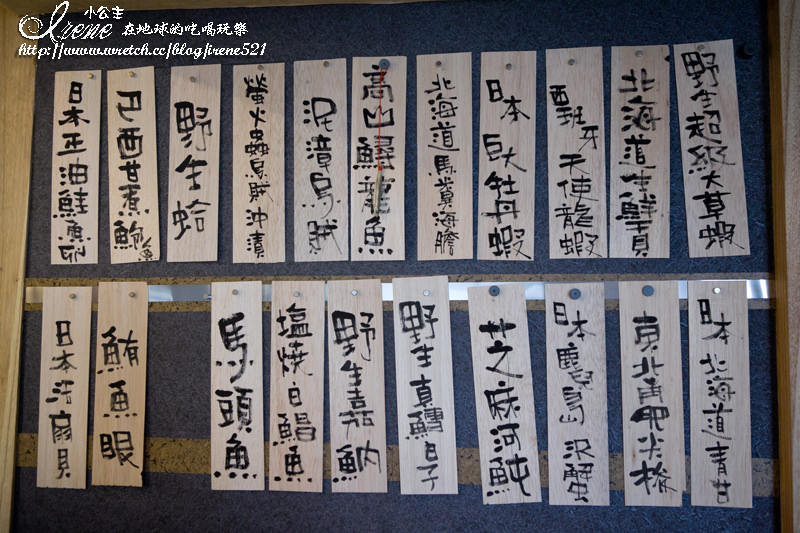 小公主
Irene 在地球的吃喝玩樂
http://www.wretch.cc/blog/irene521
野生超級大草蝦
北海道生鮮貝
西班牙天使龍蝦
日本巨大牡丹蝦
北海道馬糞海膽
高山鱘龍魚
泥漳烏賊
螢火蟲烏賊沖漬
野生蛤
巴西甘煮鮑魚
日本正油鮭魚卵
日本北海道青甘
東北角胛尖梭
日本鹿兒島沢蟹
芝麻河魨
野生真鱈白子
野生嘉魶
塩燒白鯧魚
馬頭魚
鮪魚眼
日本活扇貝